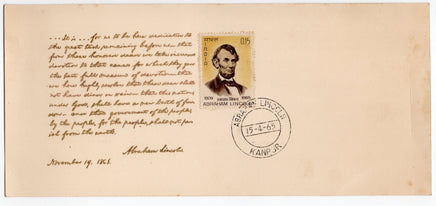 ....It is.....for us to be here dedicated to
the great task remaining before us that
from these honored dead we take increased
devotion to that cause for which they gave
the last full measure of devotion that
we here highly resolve that these dead shall
not have died in vain that this nation
under God, shall have a new birth of free
dom and that government of the people,
by the people, for the people, shall not per
ish from the earth.
Abraham Lincoln
November 19, 1863.
भारत
INDIA
0.15
1809
1965
ABRAHAM LINCOLN
ABRAHAM LINCOLN
15-4-65
KANPUR